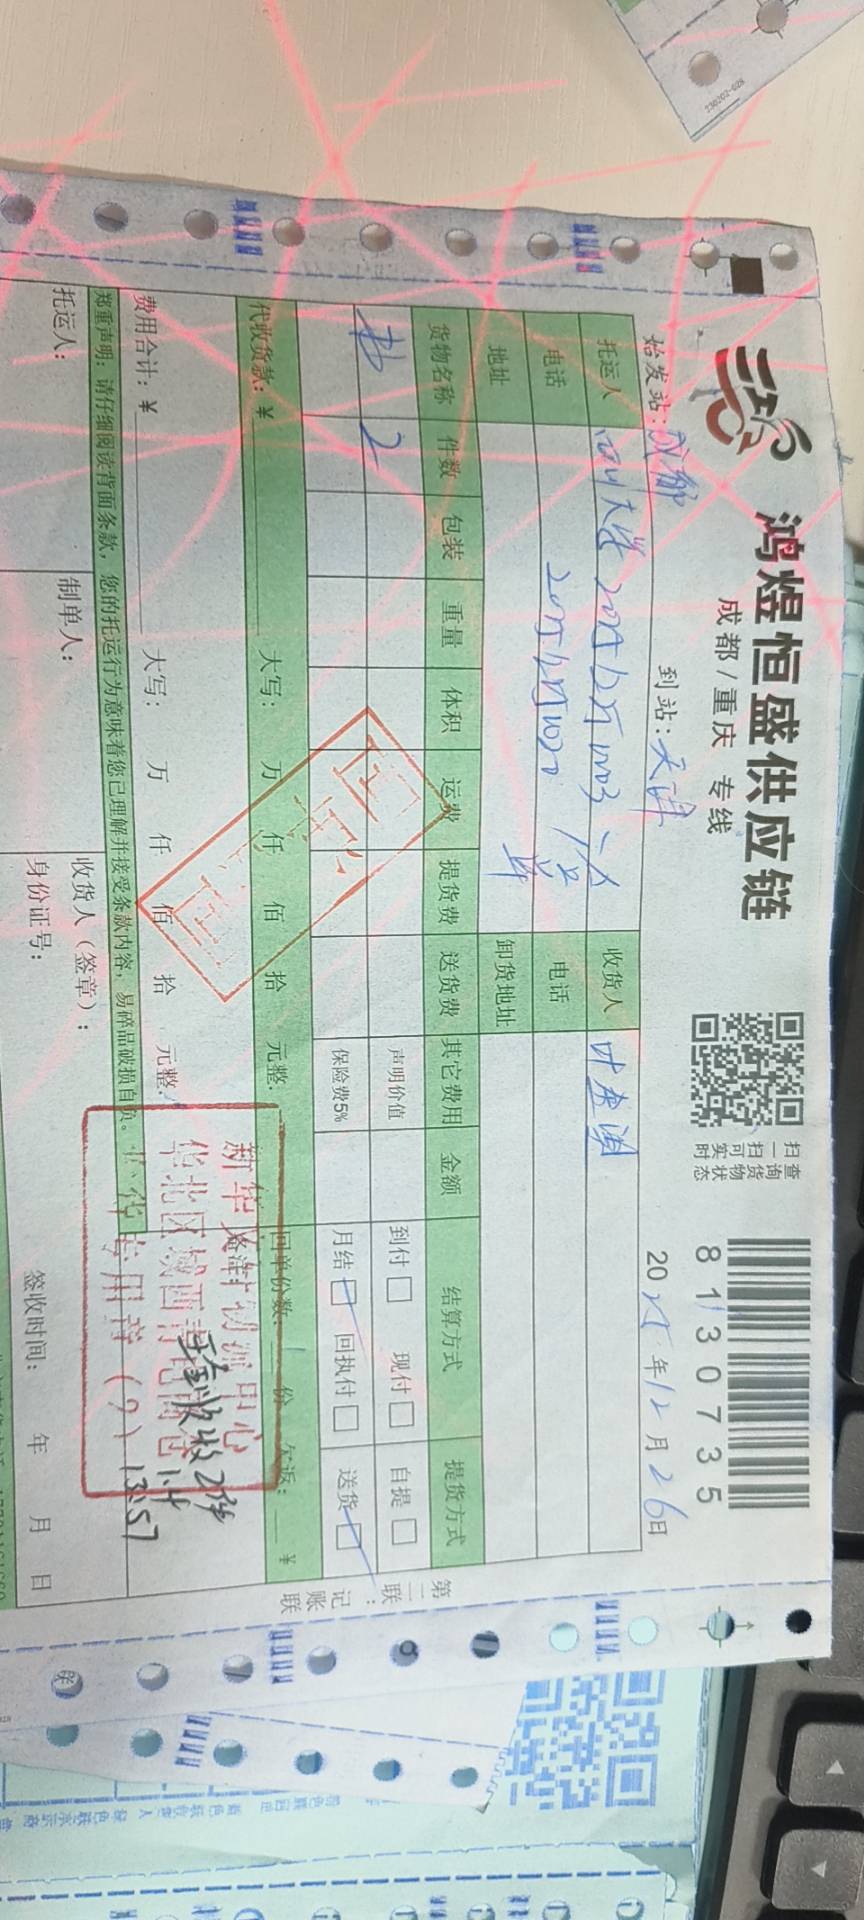 鸿煜恒盛供应链
成都/重庆 专线
扫一扫查询
可货物
实时状态
81130735
始发站:成都
到站:天津
2025年12月26日
托运人
四川大学
收货人
电话
电话
地址
卸货地址
货物名称 件数 包装 重量 体积 运费 提货费 送货费 其它费用 金额 结算方式 提货方式
书 2
声明价值
到付□ 现付□
自提□
保险费5%
月结□ 回执付□
送货□
代收货款:¥ 大写: 万 仟 佰 拾 元整.
回单份数: 份 欠返: ¥
费用合计:¥ 大写: 万 仟 佰 拾 元整.
备注:
实收2件
1.4
13:57
郑重声明:请仔细阅读背面条款,您的托运行为意味着您已理解并接受条款内容,易碎品破损自负。
托运人:
制单人:
收货人(签章):
身份证号:
签收时间: 年 月 日
第二联:记账联
回单
新华
华北区域
专用章(9)
230202-028